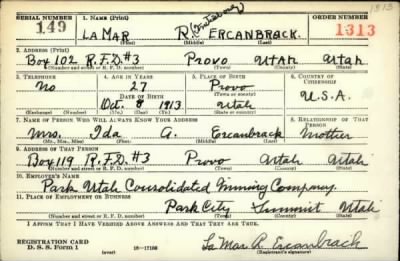 1313
SERIAL NUMBER 1. NAME (Print) ORDER NUMBER
149 LaMar R. Ercanbrack. 1313
(First) (Middle) (Last)
2. ADDRESS (Print)
Box 102 R.F.D.#3 Provo Utah Utah
(Number and street or R. F. D. number) (Town) (County) (State)
3. TELEPHONE 4. AGE IN YEARS 5. PLACE OF BIRTH 6. COUNTRY OF CITIZENSHIP
No 27 Provo
DATE OF BIRTH (Town or county)
Oct. 8 1913 Utah U.S.A.
(Exchange) (Number) (Mo.) (Day) (Yr.) (State or country)
7. NAME OF PERSON WHO WILL ALWAYS KNOW YOUR ADDRESS 8. RELATIONSHIP OF THAT PERSON
Mrs. Ida A. Ercanbrack Mother
(Mr., Mrs., Miss) (First) (Middle) (Last)
9. ADDRESS OF THAT PERSON
Box 119 R.F.D.#3 Provo Utah Utah
(Number and street or R. F. D. number) (Town) (County) (State)
10. EMPLOYER'S NAME
Park Utah Consolidated Mining Company.
11. PLACE OF EMPLOYMENT OR BUSINESS
Park City Summit Utah
(Number and street or R. F. D. number) (Town) (County) (State)
I AFFIRM THAT I HAVE VERIFIED ABOVE ANSWERS AND THAT THEY ARE TRUE.
REGISTRATION CARD
D. S. S. Form 1 (over) 16—17105 LaMar R. Ercanbrack
(Registrant's signature)